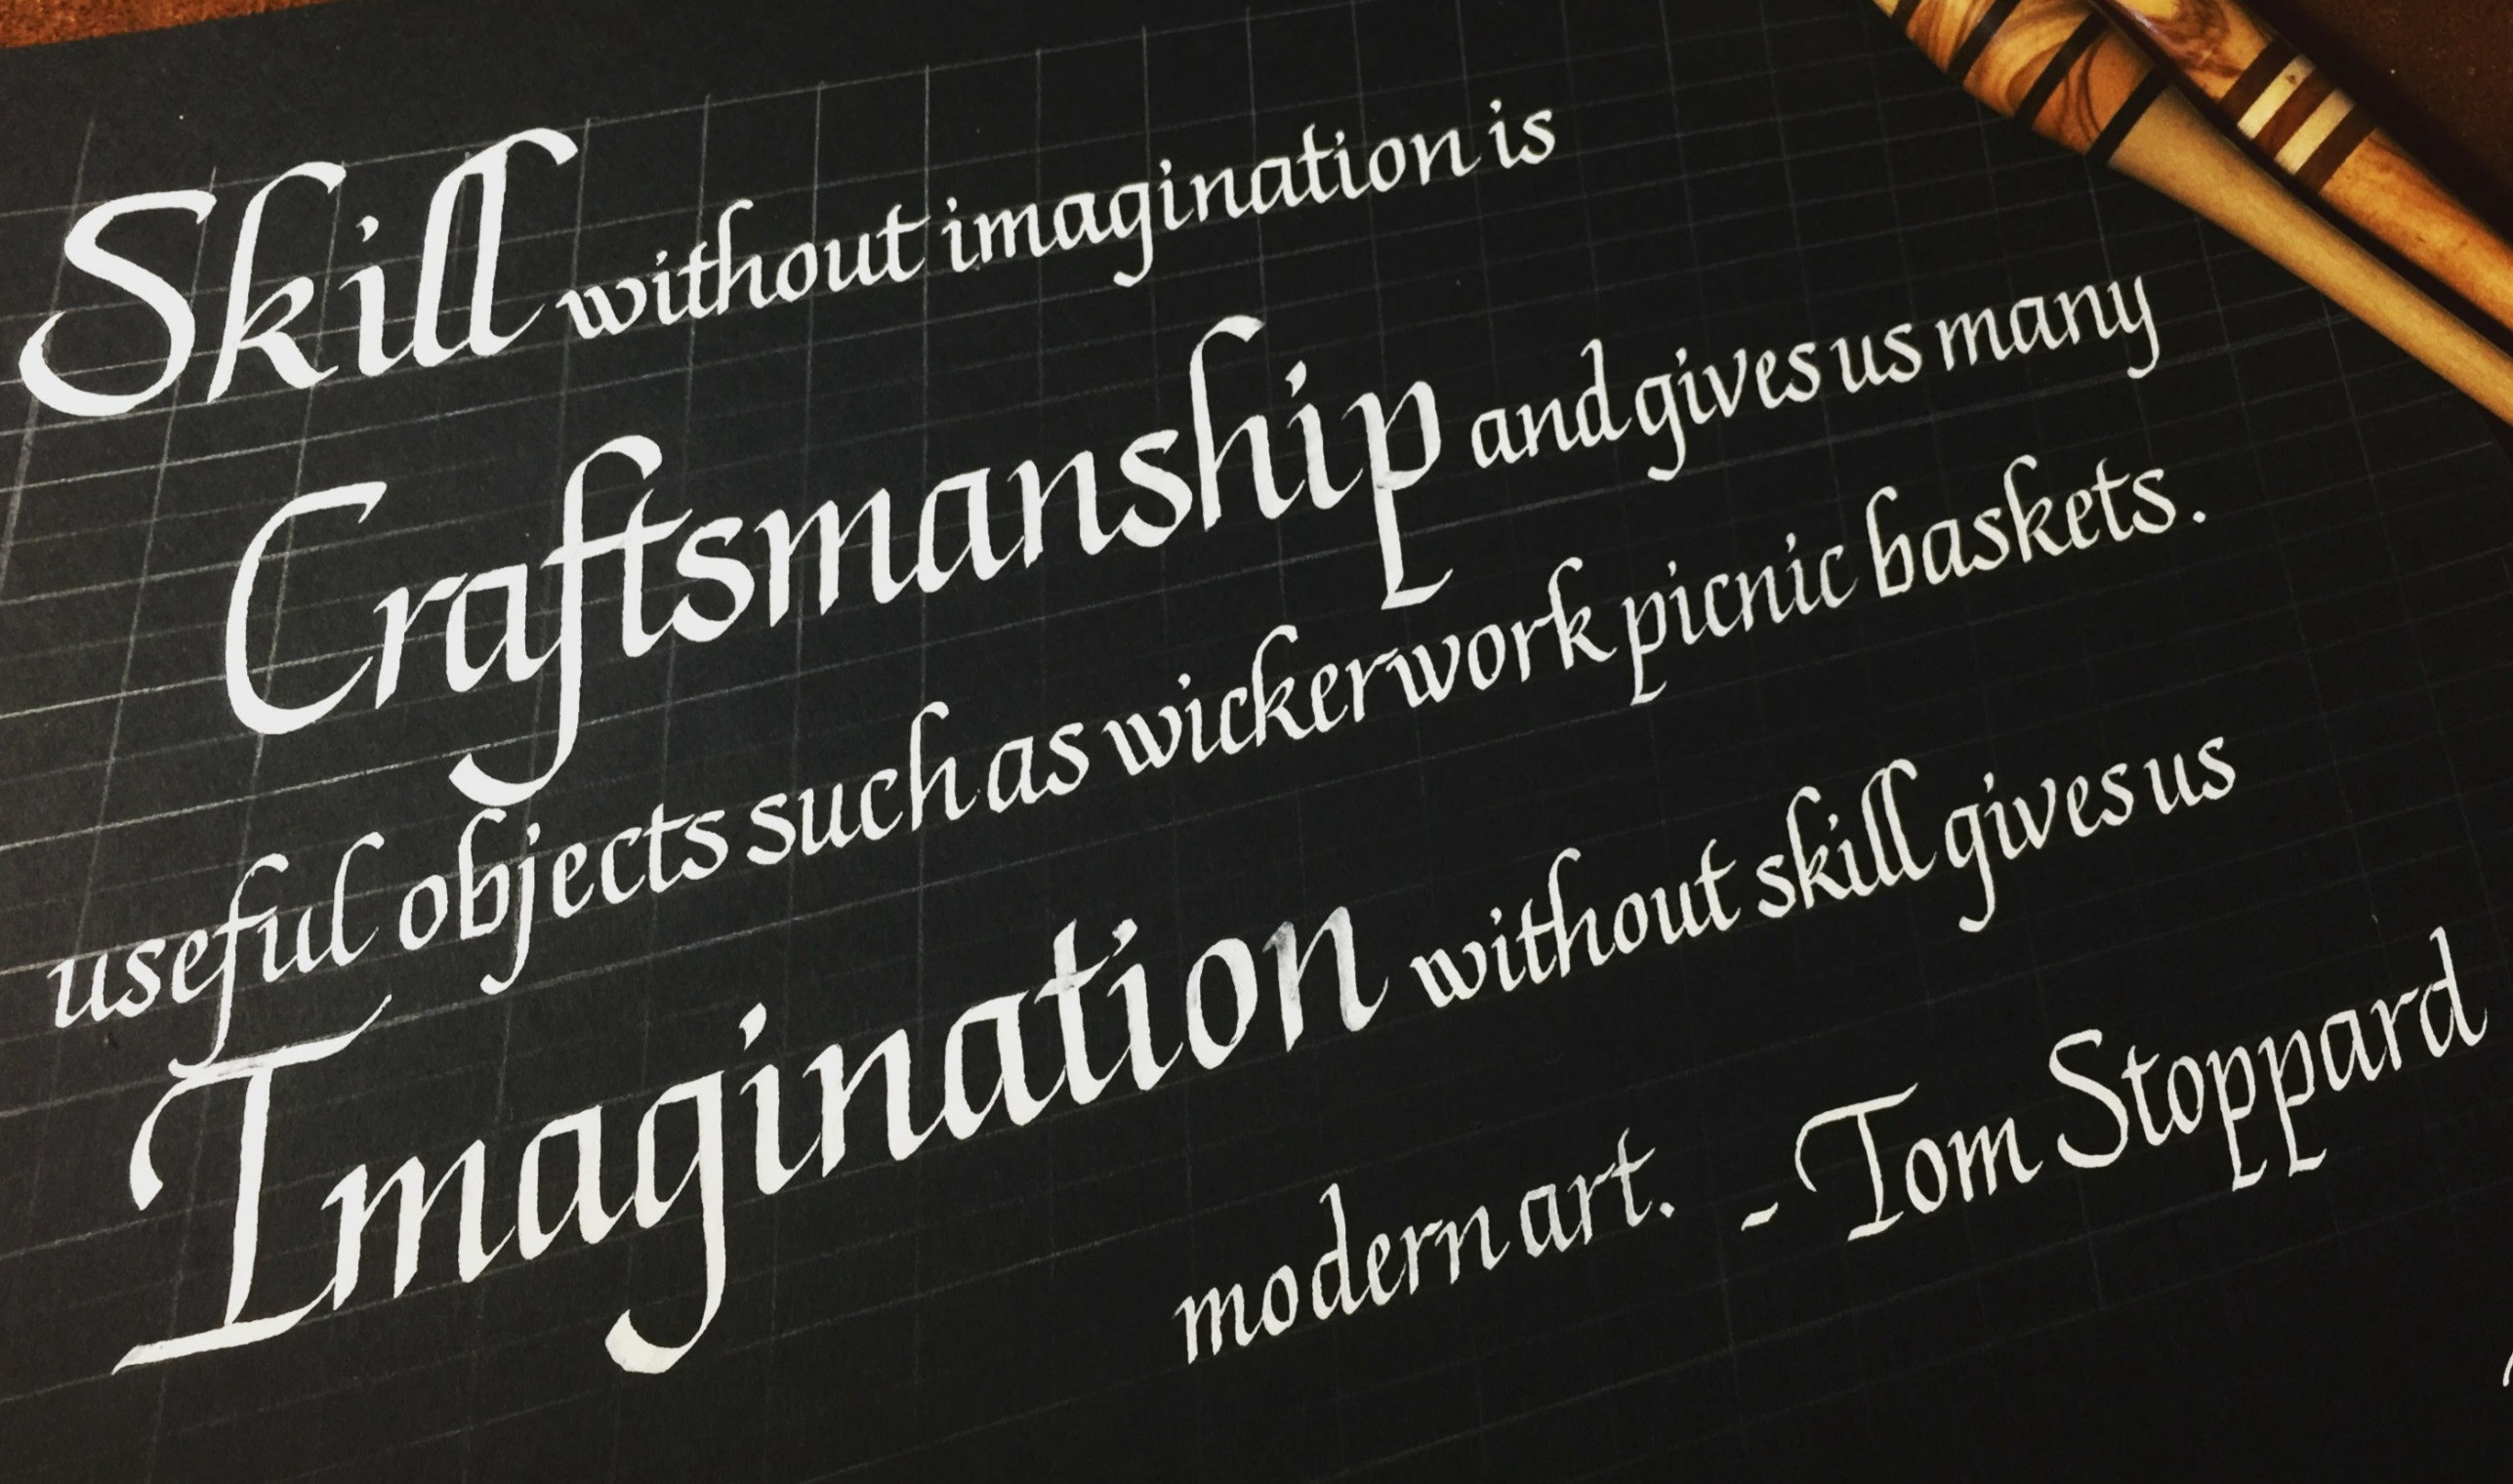 Skill without imagination is
Craftsmanship and gives us many
useful objects such as wickerwork picnic baskets.
Imagination without skill gives us
modern art. - Tom Stoppard